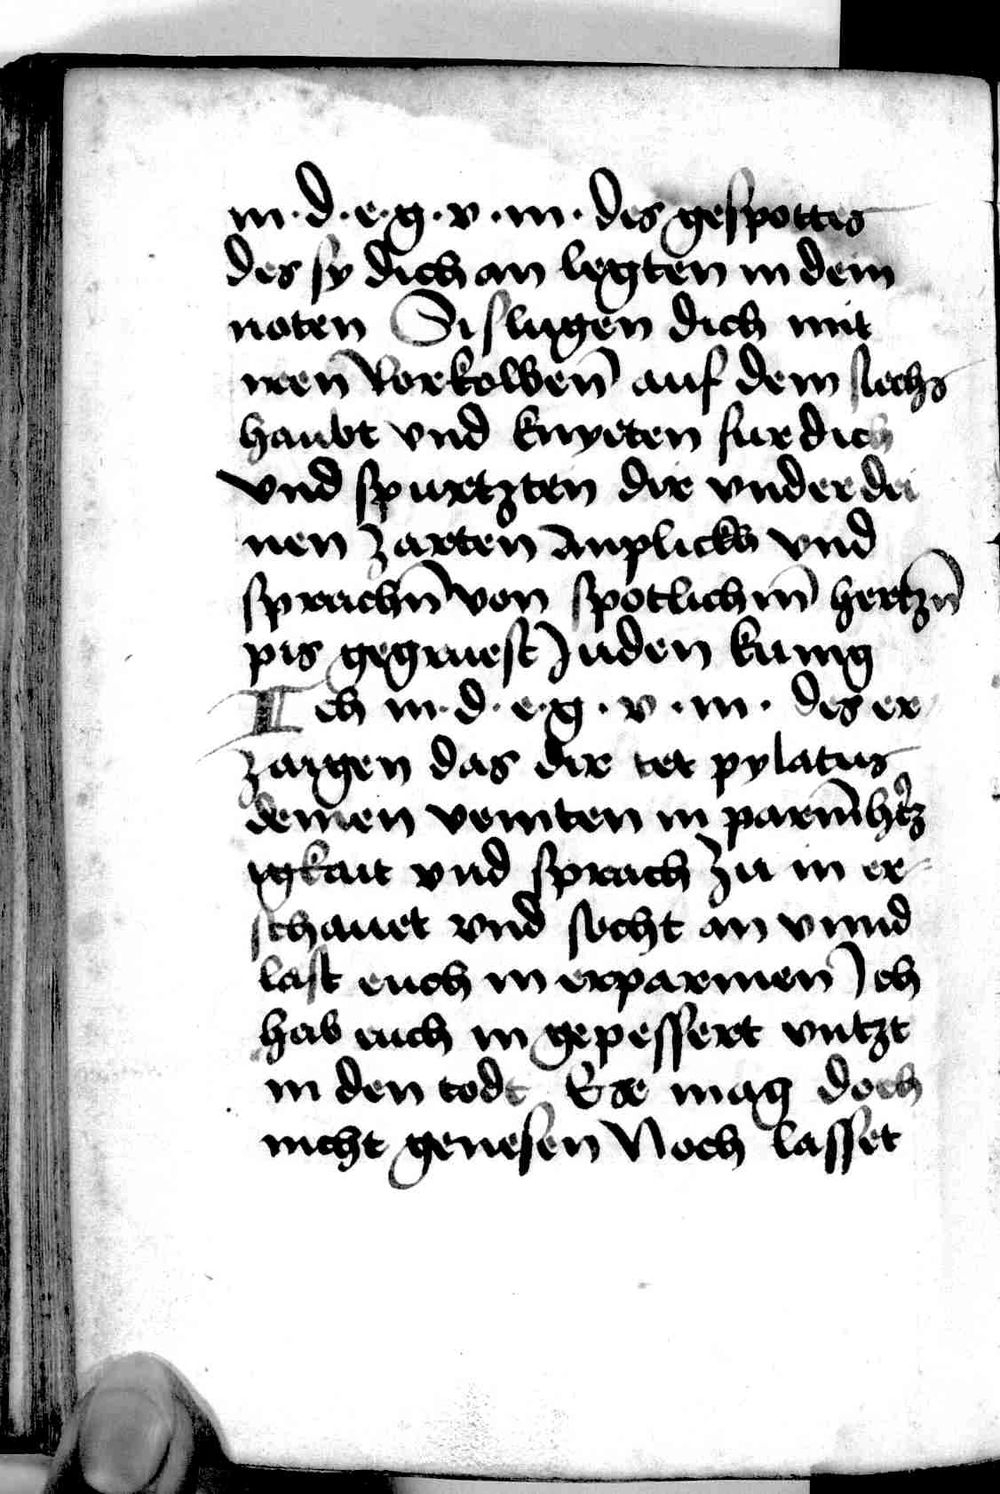 m · d · e · g · v · m · des gespottes
des sy dich an legten in dem
noten Si slugen dich mit
iren Rorkolben̄ auf dem
haubt vnd knyeten fur dich
vnd spurtzten dir vnder dei
nen zarten Anplickh vnd
sprachn̄ von spotlichm̄ hertzn̄
pis gegruest Juden kunig
Ich m · d · e · g · v · m · des er
zaigen das dir tet pylatus
deinen veinten in parmh̄tz
igkait vnd sprach zu in er
schauet vnd secht an vnnd
last euch in erparmen Ich
hab euch in gepessert vntzt
in den todt Er mag doch
nicht genesen Noch lasset